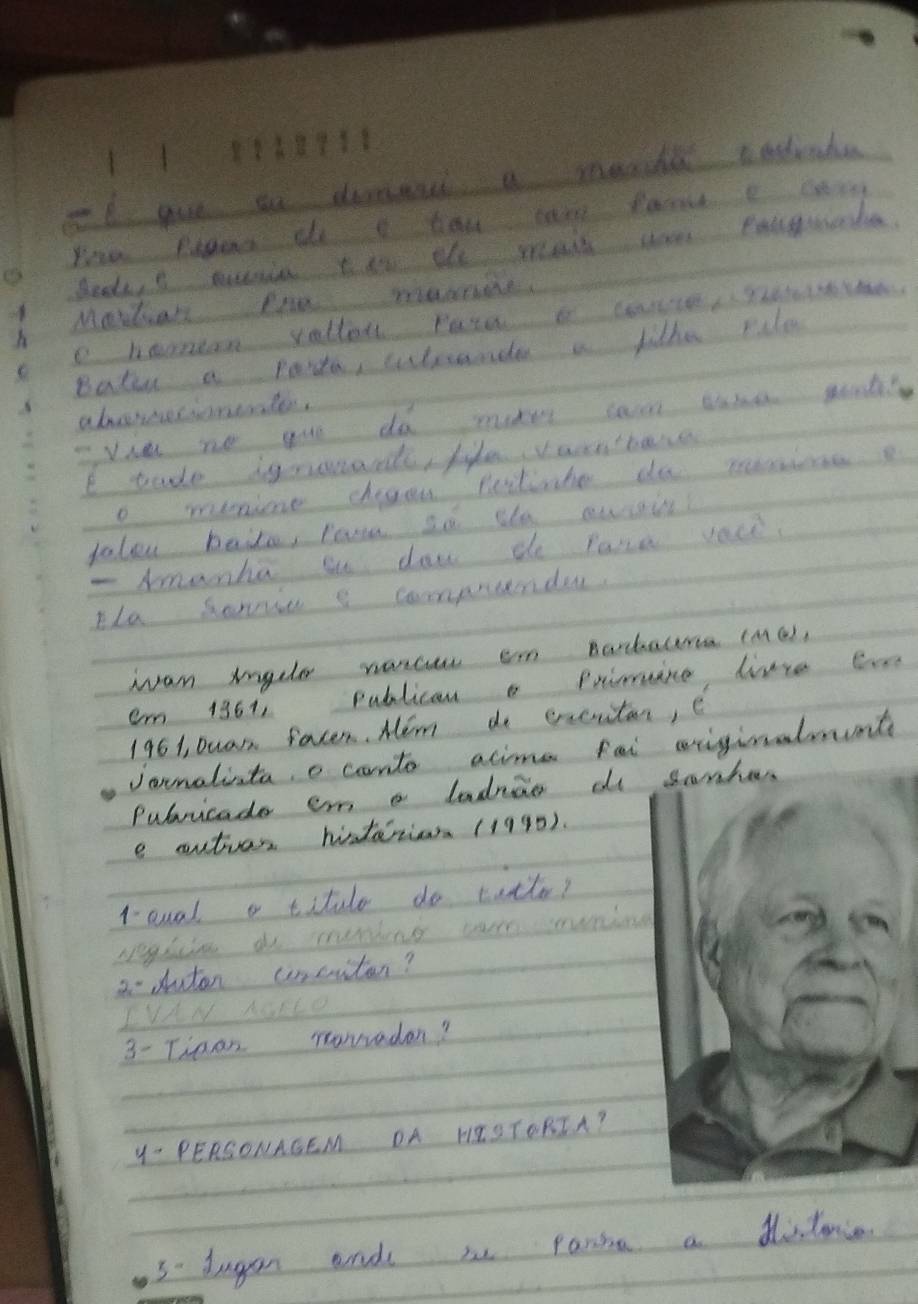 - É que eu demorei a manhã todinha
Pra Pegar ele e tou com fome e com
Sede, e queria ter ele mais um Pouquinho.
Mostrar Pra mamãe.
o homem voltou Para o carro, nervoso.
Bateu a Porta, culpando a filha Pelo
aborrecimento.
- Viu no que dá mexer com essa gente?
É tudo ignorante, filha. Vam'bora
o menino chegou Pertinho da menina e
falou baixo, Para só ela ouvir:
- Amanhã eu dou ele Para você.
Ela sorriu e compreendeu.
ivan Angelo nasceu em Barbacena (MG),
em 1361, Publicou o Primeiro livro em
1961, Duas faces. Além de escritor, é
Jornalista. o conto acima foi originalmente
Publicado em o ladrão de sonhos
e outras histórias (1990).
1- qual o titulo do texto?
Negócio de menino com menina
2- Autor escritor?
IVAN AGELO
3- Tipos narrador?
4- PERSONAGEM DA HISTORIA?
5- Lugar onde se passa a Historia.